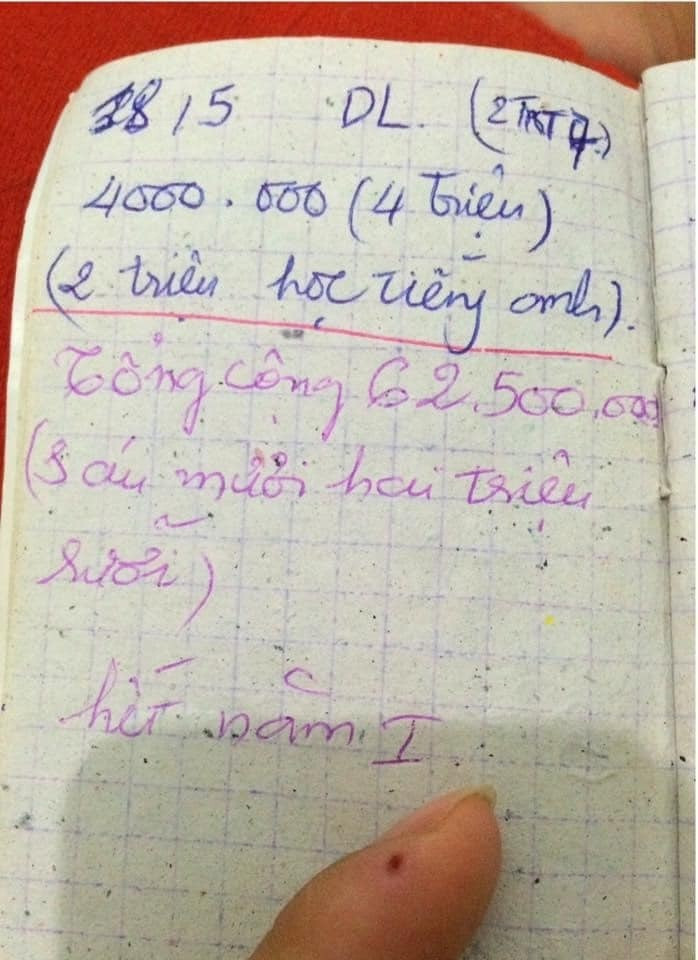 /5 DL. (2
4000.000 (4 Triệu)
(2 triệu học Tiếng anh).
Tổng cộng 62.500.000
(Sáu mười hai triệu
rưỡi)
hết năm I